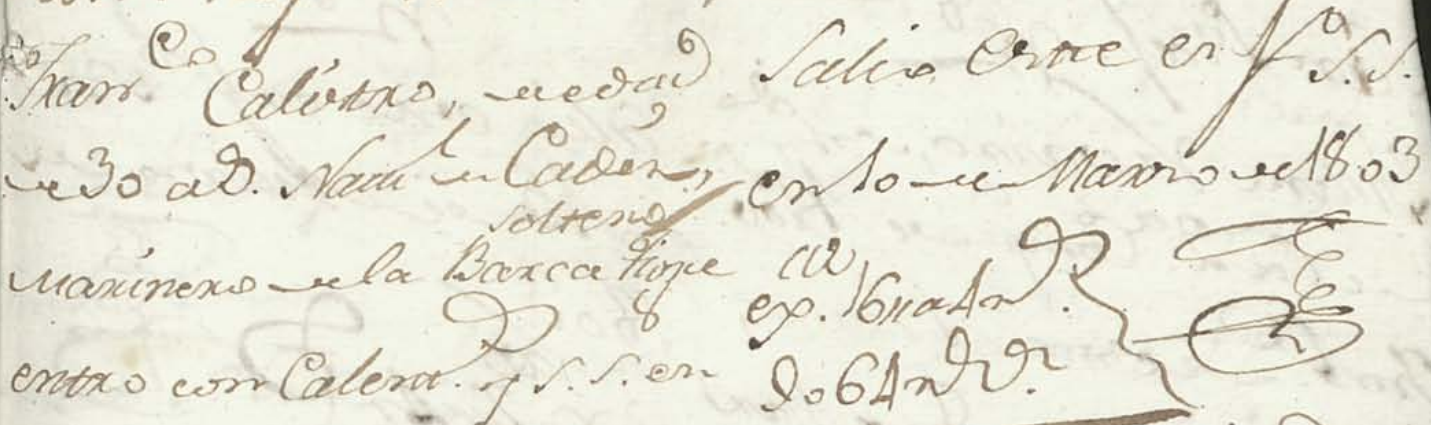 Fran.co Calistro, de edad
de 30 a.s Nat.l de Cadiz,
soltero
Marinero de la Barca
entro con Calent.a y S. S. en
Salio Este en p.o S. S.
en 10 de Marzo de 1803
ex. 16 a 4 r.s
64 r.s